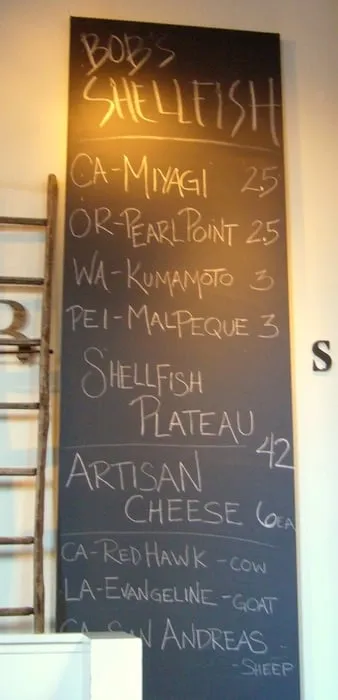 BOB'S
SHELLFISH
CA-MIYAGI 2.5
OR-PEARL POINT 2.5
WA-KUMAMOTO 3
PEI-MALPEQUE 3
SHELLFISH
PLATEAU
42
ARTISAN
CHEESE 6EA
CA-RED HAWK -COW
LA-EVANGELINE -GOAT
CA-SAN ANDREAS -
-SHEEP
R
S